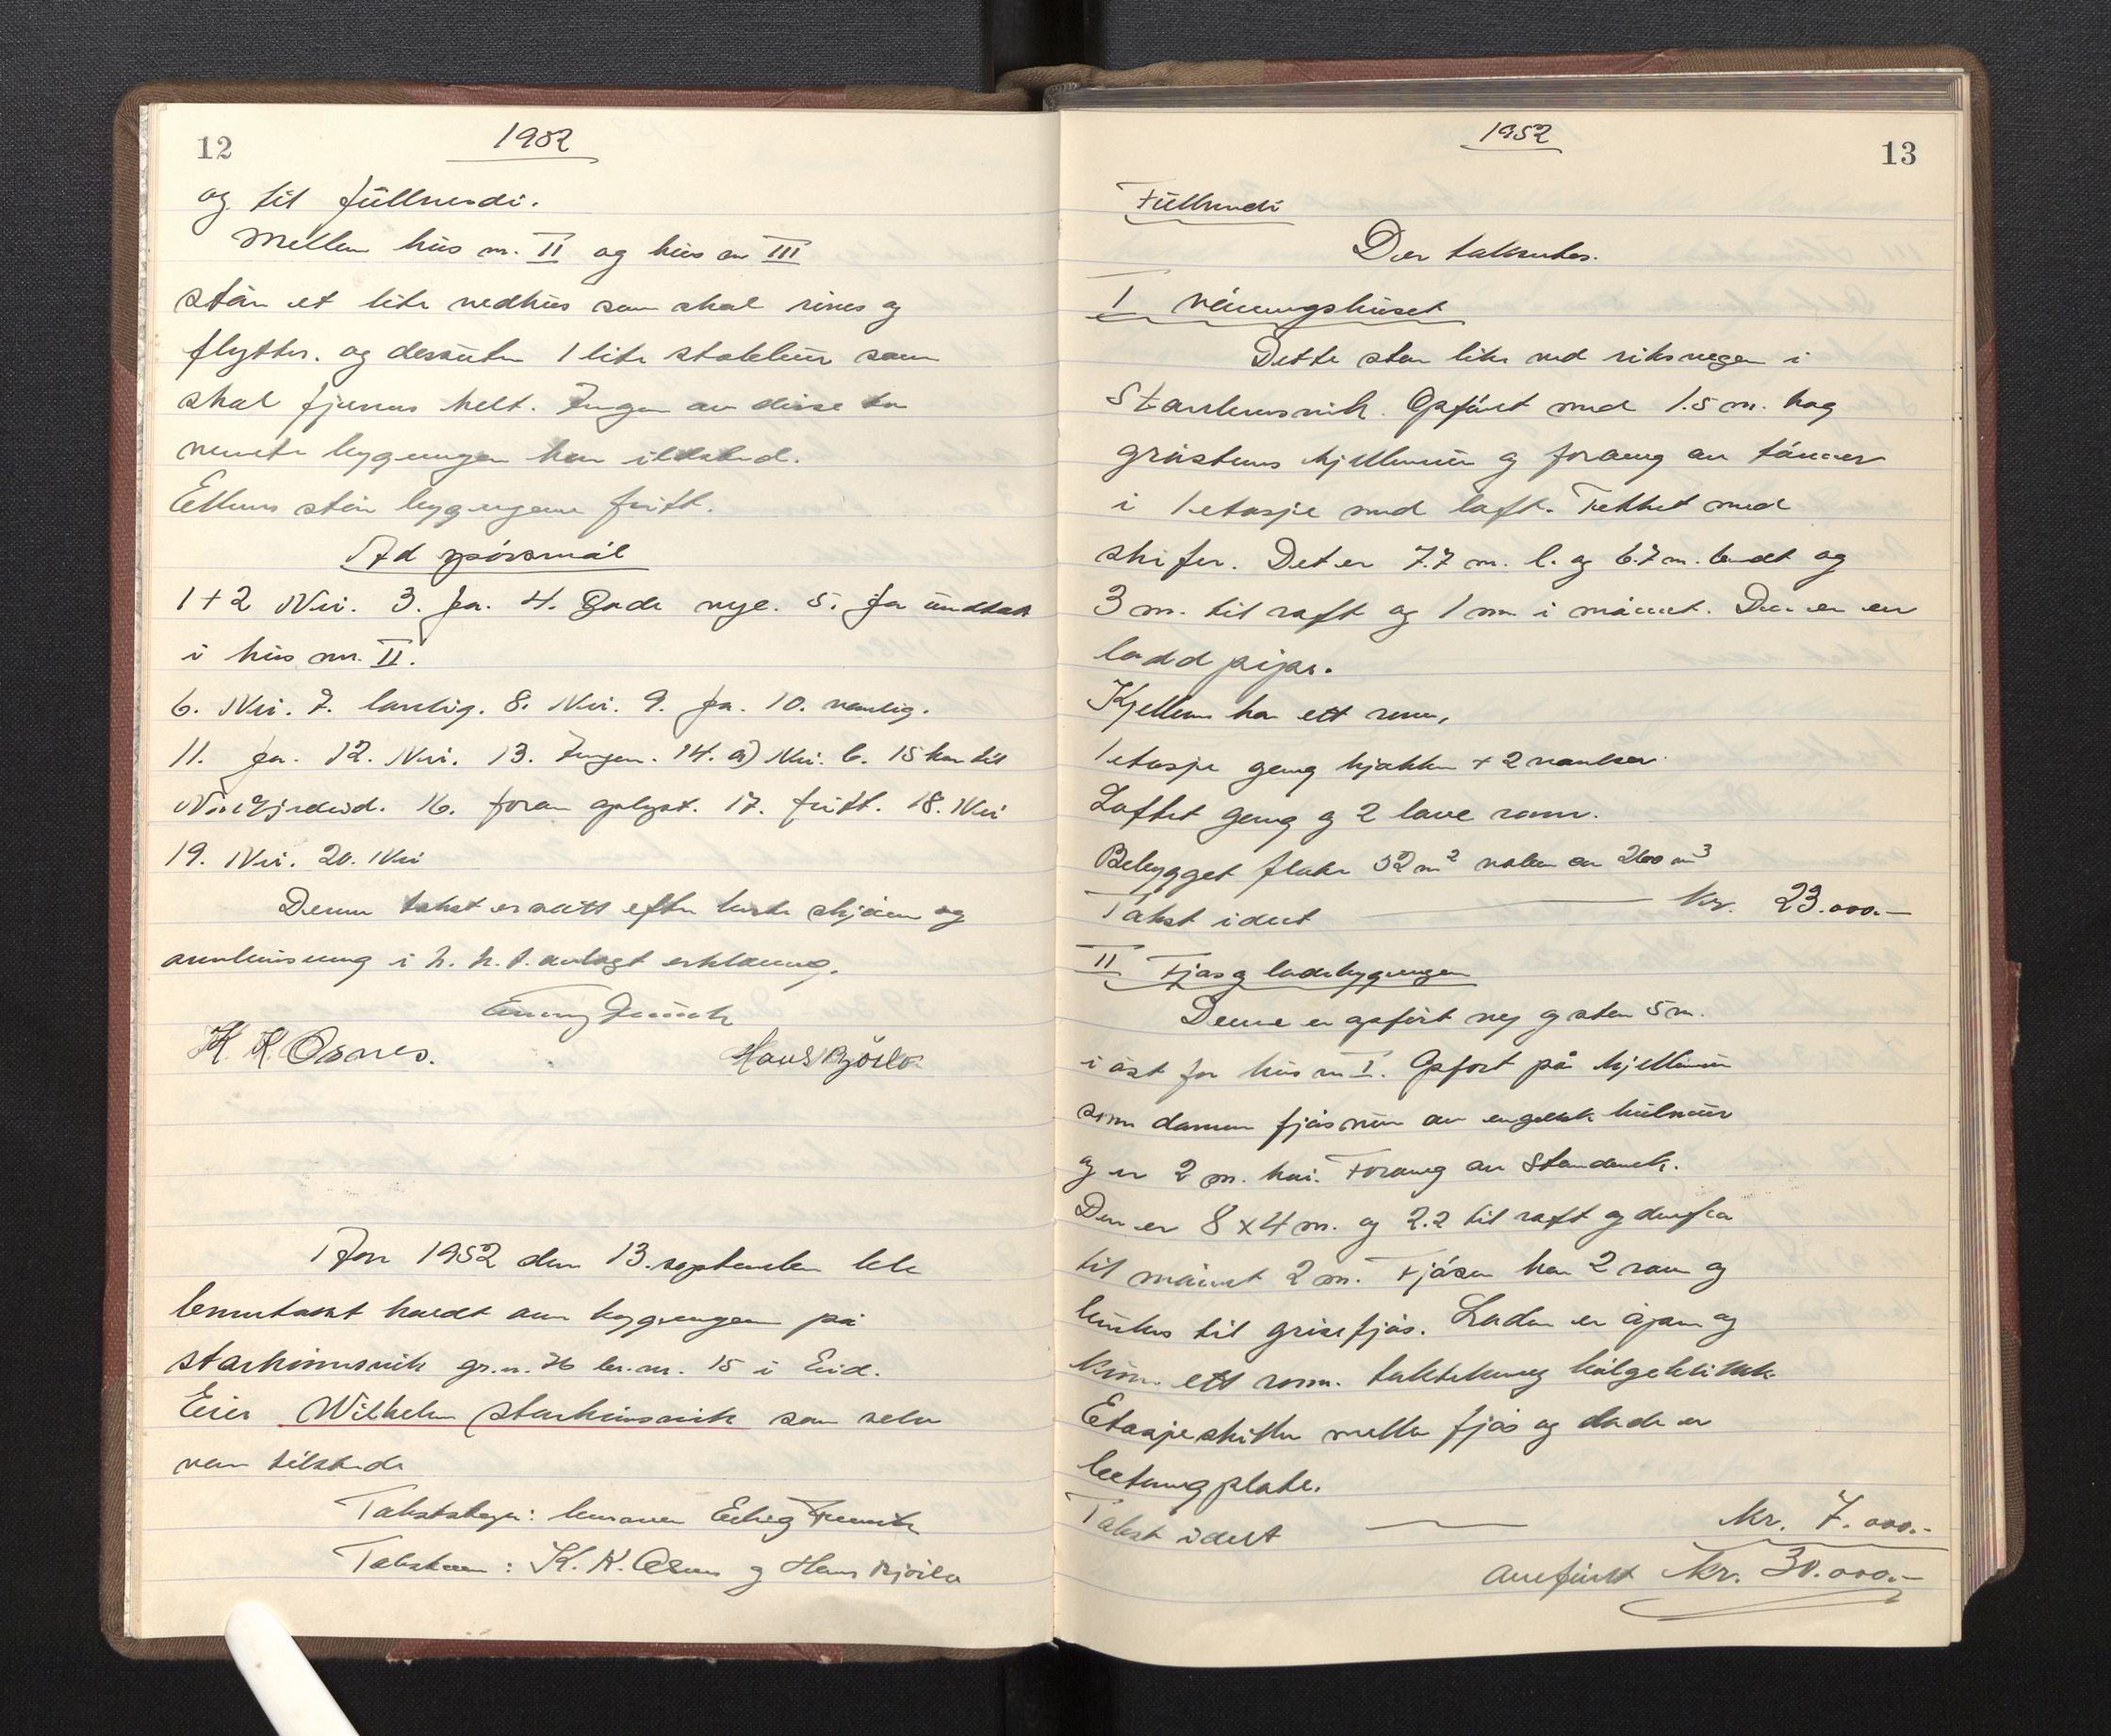 12
1952
og til füllverdi.
Mellem hüs nr. II og hüs nr III
står et lite vedhüs som skal rives og
flyttes. og dessüten 1 lite stabbür som
skal fjernes helt. Ingen av disse to
nevnte bygninger har ildsted.
Ellers står bygningene fritt.
Ad spörsmål
1+2 Nei. 3. Ja. 4. Gode nye. 5. Ja ündtatt
i hüs nr. II.
6. Nei. 7. landlig. 8. Nei. 9. Ja. 10. vanlig.
11. Ja. 12. Nei. 13. Ingen. 14. a) Nei. b. 15 km til
Nordfjordeid. 16. foran oplyst. 17. fritt. 18. Nei
19. Nei. 20. Nei
Denne takst er satt efter beste skjönn og
overbevisning i h. h. t. avlagt erklæring.
K. K. Osnes.
Hans Bjørlo
År 1952 den 13. september ble
branntakst holdt over bygningene på
Starheimsvik gr.n. 76 br.nr. 15 i Eid.
Eier Wilhelm Starheimsvik som selv
var tilstede
Takstbestyrer: lensmann
Takstmenn: K. K. Osnes og Hans Bjørlo
1952
13
Füllverdi
Der takseertes.
I Våningshüset
Dette står like ved riksvegen i
Starheimsvik. Opfört med 1.5 m. høg
gråstens kjellermür og forövrig av tömmer
i 1 etasje med loft. Tekket med
skifer. Det er 7.7 m. l. og 6.7 m. bredt og
3 m. til raft og 1 m i mönet. Der er en
ladd pipe.
Kjelleren har ett rom,
1 etasje gang kjøkken + 2 værelser.
Loftet gang og 2 lave rom.
Bebygget flate 52 m² volum er 260 m³
Takst idert kr. 23.000.-
II Fjös og ladebygningen
Denne er opfört ny og står 5 m.
i öst for hüs nr I. Opfört på kjellermür
som danner fjösmür av engelsk hülmür
og er 2 m. höi. Forövrig av standverk.
Den er 8 x 4 m. og 2.2 til raft og derfra
til mönet 2 m. Fjöset har 2 rom og
brükes til grisefjös. Laden er åpen og
kün ett rom. taktekning bölgeblikk.
Etasjeskille mellem fjös og lade er
betongplate.
Takst idert kr. 7.000.-
overfört kr. 30.000.-